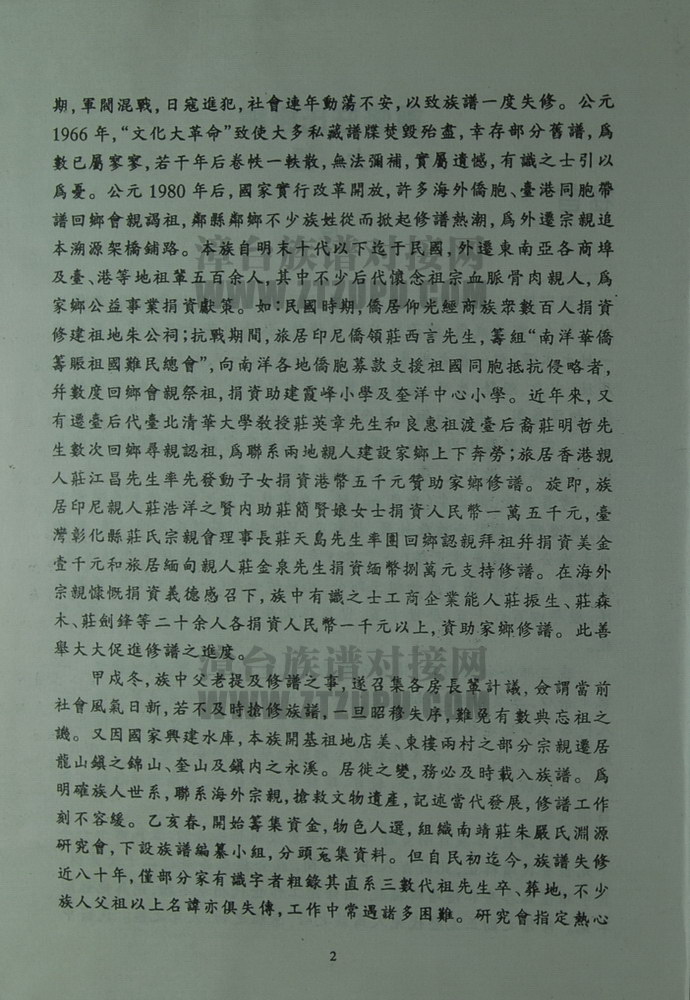 期,軍閥混戰,日寇進犯,社會連年動蕩不安,以致族譜一度失修。公元
1966年,“文化大革命”致使大多私藏譜牒焚毀殆盡,幸存部分舊譜,爲
數已屬寥寥,若干年后卷帙一軼散,無法彌補,實屬遺憾,有識之士引以
爲憂。公元1980年后,國家實行改革開放,許多海外僑胞、臺港同胞帶
譜回鄉會親謁祖,鄰縣鄰鄉不少族姓從而掀起修譜熱潮,爲外遷宗親追
本溯源架橋鋪路。本族自明末十代以下迄于民國,外遷東南亞各商埠
及臺、港等地祖輩五百余人,其中不少后代懷念祖宗血脈骨肉親人,爲
家鄉公益事業捐資獻策。如:民國時期,僑居仰光經商族衆數百人捐資
修建祖地朱公祠;抗戰期間,旅居印尼僑領莊西言先生,籌組“南洋華僑
籌賑祖國難民總會”,向南洋各地僑胞募款支援祖國同胞抵抗侵略者,
幷數度回鄉會親祭祖,捐資助建霞峰小學及奎洋中心小學。近年來,又
有遷臺后代臺北清華大學敎授莊英章先生和良惠祖渡臺后裔莊明哲先
生數次回鄉尋親認祖,爲聯系兩地親人建設家鄉上下奔勞;旅居香港親
人莊江昌先生率先發動子女捐資港幣五千元贊助家鄉修譜。旋即,族
居印尼親人莊浩洋之賢内助莊簡賢娘女士捐資人民幣一萬五千元,臺
灣彰化縣莊氏宗親會理事長莊天島先生率團回鄉認親拜祖幷捐資美金
壹千元和旅居緬甸親人莊金泉先生捐資緬幣捌萬元支持修譜。在海外
宗親慷慨捐資義德感召下,族中有識之士工商企業能人莊振生、莊森
木、莊劍鋒等二十余人各捐資人民幣一千元以上,資助家鄉修譜。此善
舉大大促進修譜之進度。
甲戌冬,族中父老提及修譜之事,遂召集各房長輩計議,僉謂當前
社會風氣日新,若不及時搶修族譜,一旦昭穆失序,難免有數典忘祖之
譏。又因國家興建水庫,本族開基祖地店美、東樓兩村之部分宗親遷居
龍山鎭之錦山、奎山及鎭内之永溪。居徙之變,務必及時載入族譜。爲
明確族人世系,聯系海外宗親,搶救文物遺產,記述當代發展,修譜工作
刻不容緩。乙亥春,開始籌集資金,物色人選,組織南靖莊朱嚴氏淵源
研究會,下設族譜編纂小組,分頭蒐集資料。但自民初迄今,族譜失修
近八十年,僅部分家有識字者粗錄其直系三數代祖先生卒、葬地,不少
族人父祖以上名諱亦俱失傳,工作中常遇諸多困難。研究會指定熱心
2
漳台族谱对接网
漳台族谱对接网